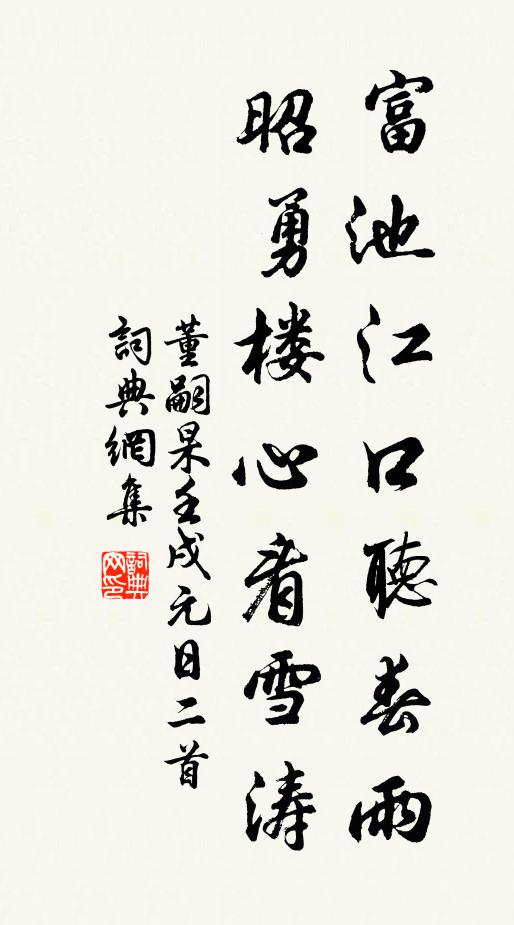 富池江口聽春雨
昭勇楼心看雪涛
董嗣杲壬戌元日二首
詞典網集
詞典
网印